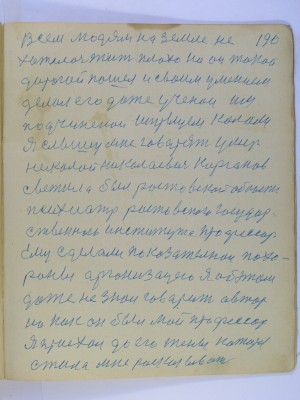 Всем людям на земле не 190
хотелос жит плохо но он такой
дорогой пошел и своим умением
делал его даже ученой им
подчиненой
Я слышу мне говарят умир
Николай Николаевич Карганов
светила был ростовской област
психиатр ростовского государ
ственного института професор
Ему сделали показателной похо-
роны я об этом
даже не знои говарит автор
но как он был мой професор
Я приехал до его жены катора
стала мне расказыват